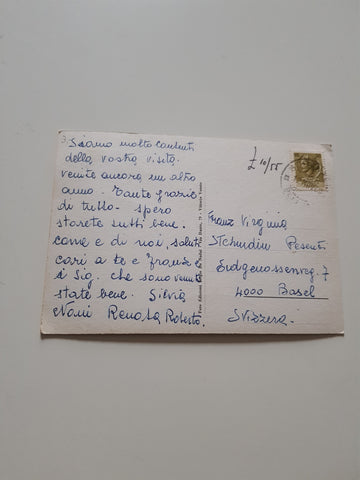 Siamo molto contenti
della vostra visita.
venite ancora un altro
anno. Tante grazie
di tutto - spero
starete tutti bene.
come e di noi, saluti
cari a te e Franz
i Sig. che sono venuti
state bene. Silvia
Noni Renata Roberto.
£ 10/55
Franz Virginia
Tschudin Pesenti
Erdgenossenweg. 7
4000 Basel
Svizzera.